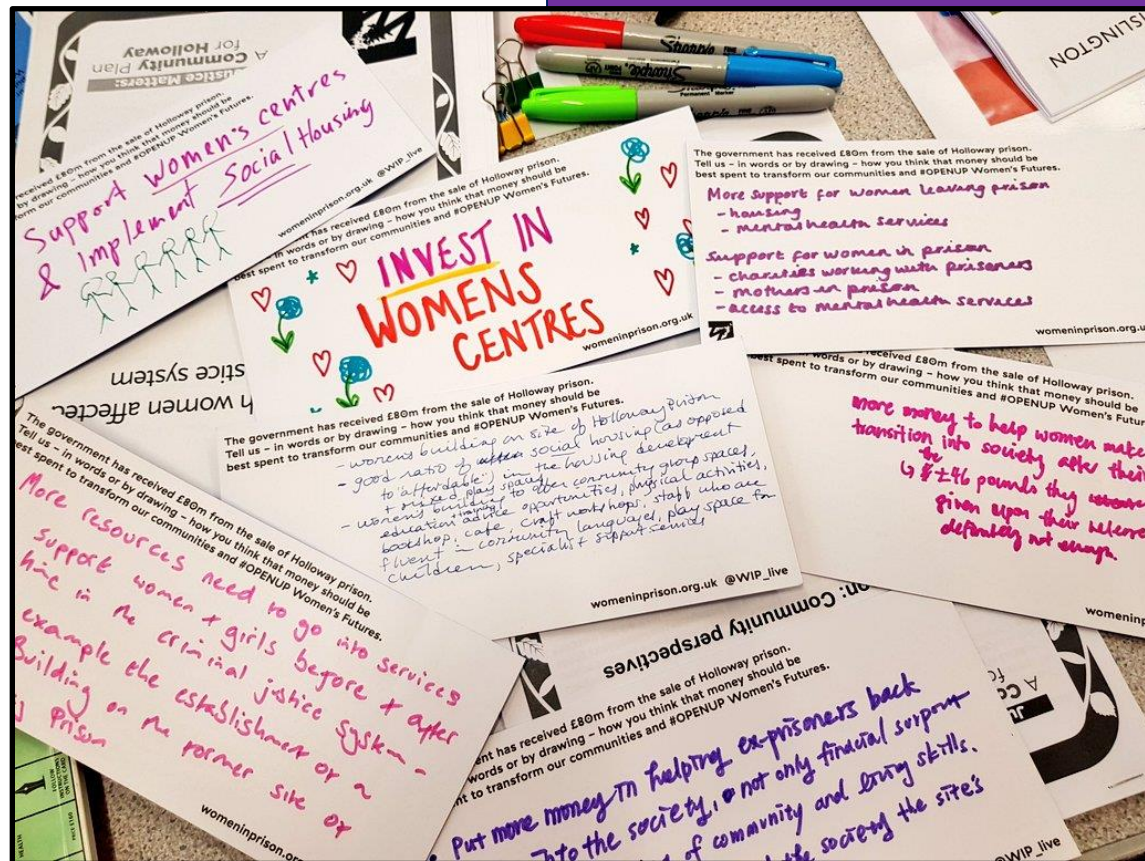 Justice Matters:
A Community Plan
for Holloway
received £80m from the sale of Holloway prison.
by drawing – how you think that money should be
form our communities and #OPENUP Women's Futures.
Support women's centres
& Implement Social Housing
womeninprison.org.uk @WIP_live
Sharpie
Sharpie
Permanent Marker
ISLINGTON
nt has received £80m from the sale of Holloway prison.
in words or by drawing – how you think that money should be
best spent to transform our communities and #OPENUP Women's Futures.
INVEST IN
WOMENS
CENTRES
womeninprison.org.uk
The government has received £80m from the sale of Holloway prison.
Tell us – in words or by drawing – how you think that money should be
best spent to transform our communities and #OPENUP Women's Futures.
More support for women leaving prison
- housing
- mental health services
Support for women in prison
- charities working with prisoners
- mothers in prison
- access to mental health services
womeninprison.org.u
h women affected
stice system
The government has received £80m from the sale of Holloway prison.
Tell us – in words or by drawing – how you think that money should be
best spent to transform our communities and #OPENUP Women's Futures.
- women's building on site of Holloway Prison
- good ratio of social housing (as opposed
to 'affordable') in the housing development
play space
- women's building to offer community group spaces,
education advice training opportunities, physical activities,
bookshop, cafe, craft workshops, staff who are
fluent in community languages, play space for
children, specialist support services
womeninprison.org.uk @WIP_live
received £80m from the sale of Holloway prison.
words or by drawing – how you think that money should be
est spent to transform our communities and #OPENUP Women's Futur
more money to help women make
transition into society after their
↳ the £46 pounds they
given upon their release
definitely not enough.
womeninp
The government has received £80m from the sale of Holloway prison.
Tell us – in words or by drawing – how you think that money should be
best spent to transform our communities and #OPENUP Women's Futures.
More resources need to go into services
support women + girls before + after
time in the criminal justice system -
example the establishment of a
Building on the former site of
prison
womeninprison.or
on: Community perspectives
ent has received £80m from the sale of Holloway prison.
words or by drawing – how you think that money should be
nt to transform our communities and #OPENUP Women's Futures.
Put more money in helping ex-prisoners back
into the society, not only financial support
of community and living skills.
the society the site's
@WIP_live
FOLLOW
INSTRUCTIONS
ON THE CARD